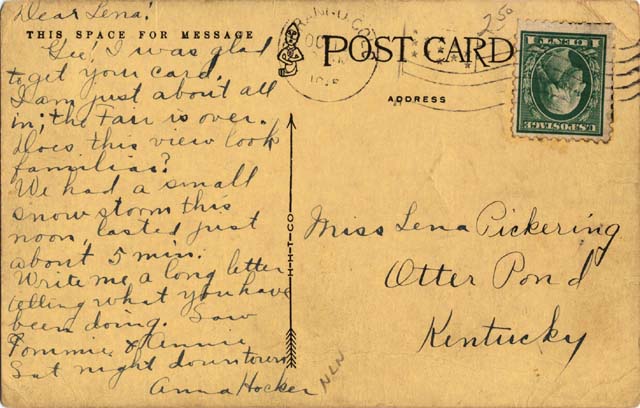 Dear Lena!
THIS SPACE FOR MESSAGE
Gee! I was glad
to get your card.
I am just about all
in; the Fair is over.
Does this view look
familiar?
We had a small
snow storm this
noon, lasted just
about 5 min.
Write me a long letter
telling what you have
been doing. Saw
Tommie & Annie
Sat night downtown
Anna Hocker
H-H-T-CO
NLN
250
POST CARD
ADDRESS
1 CENT 1
U.S. POSTAGE
Miss Lena Pickering
Otter Pond
Kentucky